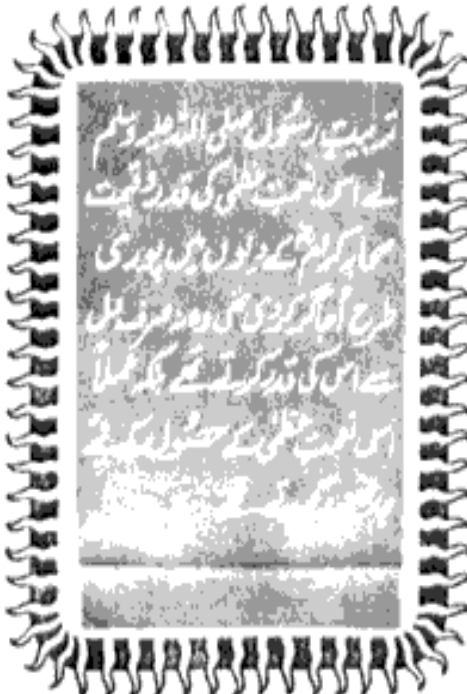 تربیت رسول صلی اللہ علیہ وسلم
نے اس نعمت عظمیٰ کی قدر و قیمت
صحابہ کرامؓ کے دلوں میں پوری
طرح اُجاگر کر دی تھی وہ نہ صرف دل
سے اس کی قدر کرتے تھے بلکہ عملاً
اس نعمت عظمیٰ کے حصول کے لیے